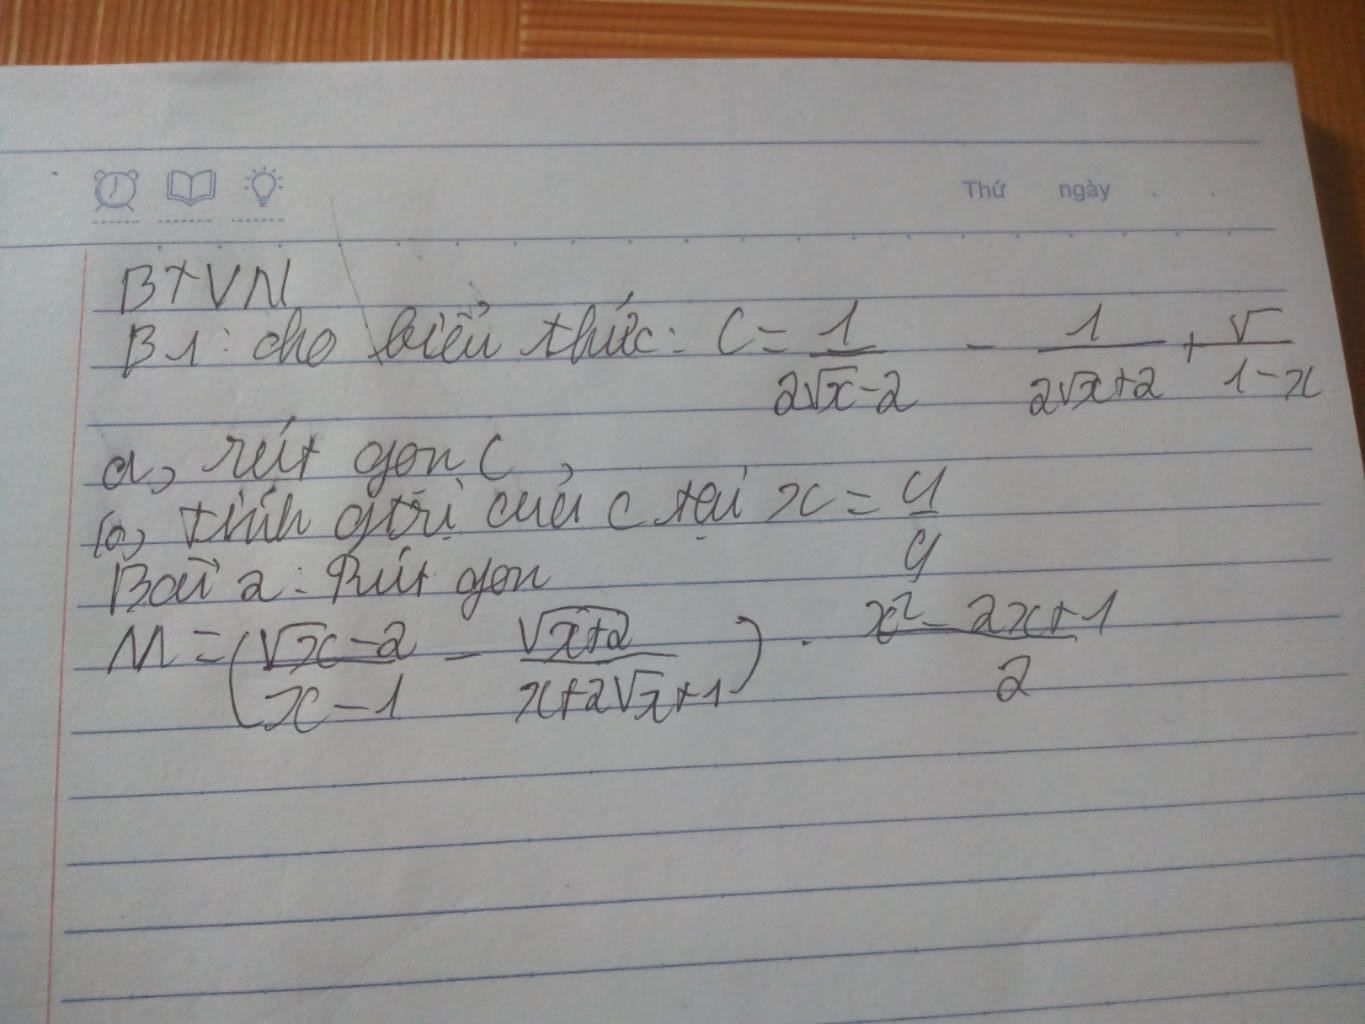 Thứ ngày
BTVN
B1: cho biểu thức: C = 1/(2√x-2) - 1/(2√x+2) + √/(1-x)
a, rút gọn C
b, tính gtrị của C tại x = 4/9
Bài 2: Rút gọn
M = ((√x-2)/(x-1) - (√x+2)/(x+2√x+1)) . (x²-2x+1)/2